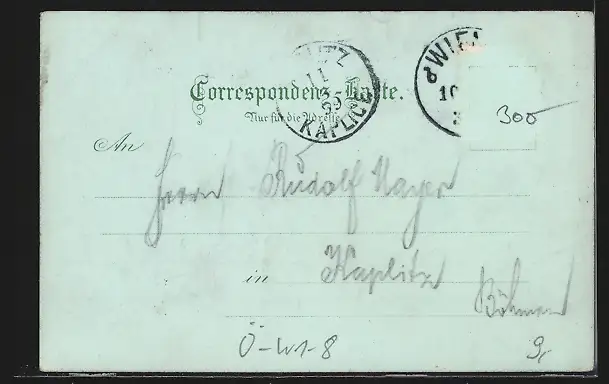 KAPLITZ
11
3
99
KAPLICE
WIEN
10
Correspondenz-Karte.
Nur für die Adresse.
300
An
Herrn Rudolf Mayer
in Kaplitz
Böhmen
Ö-W1-8